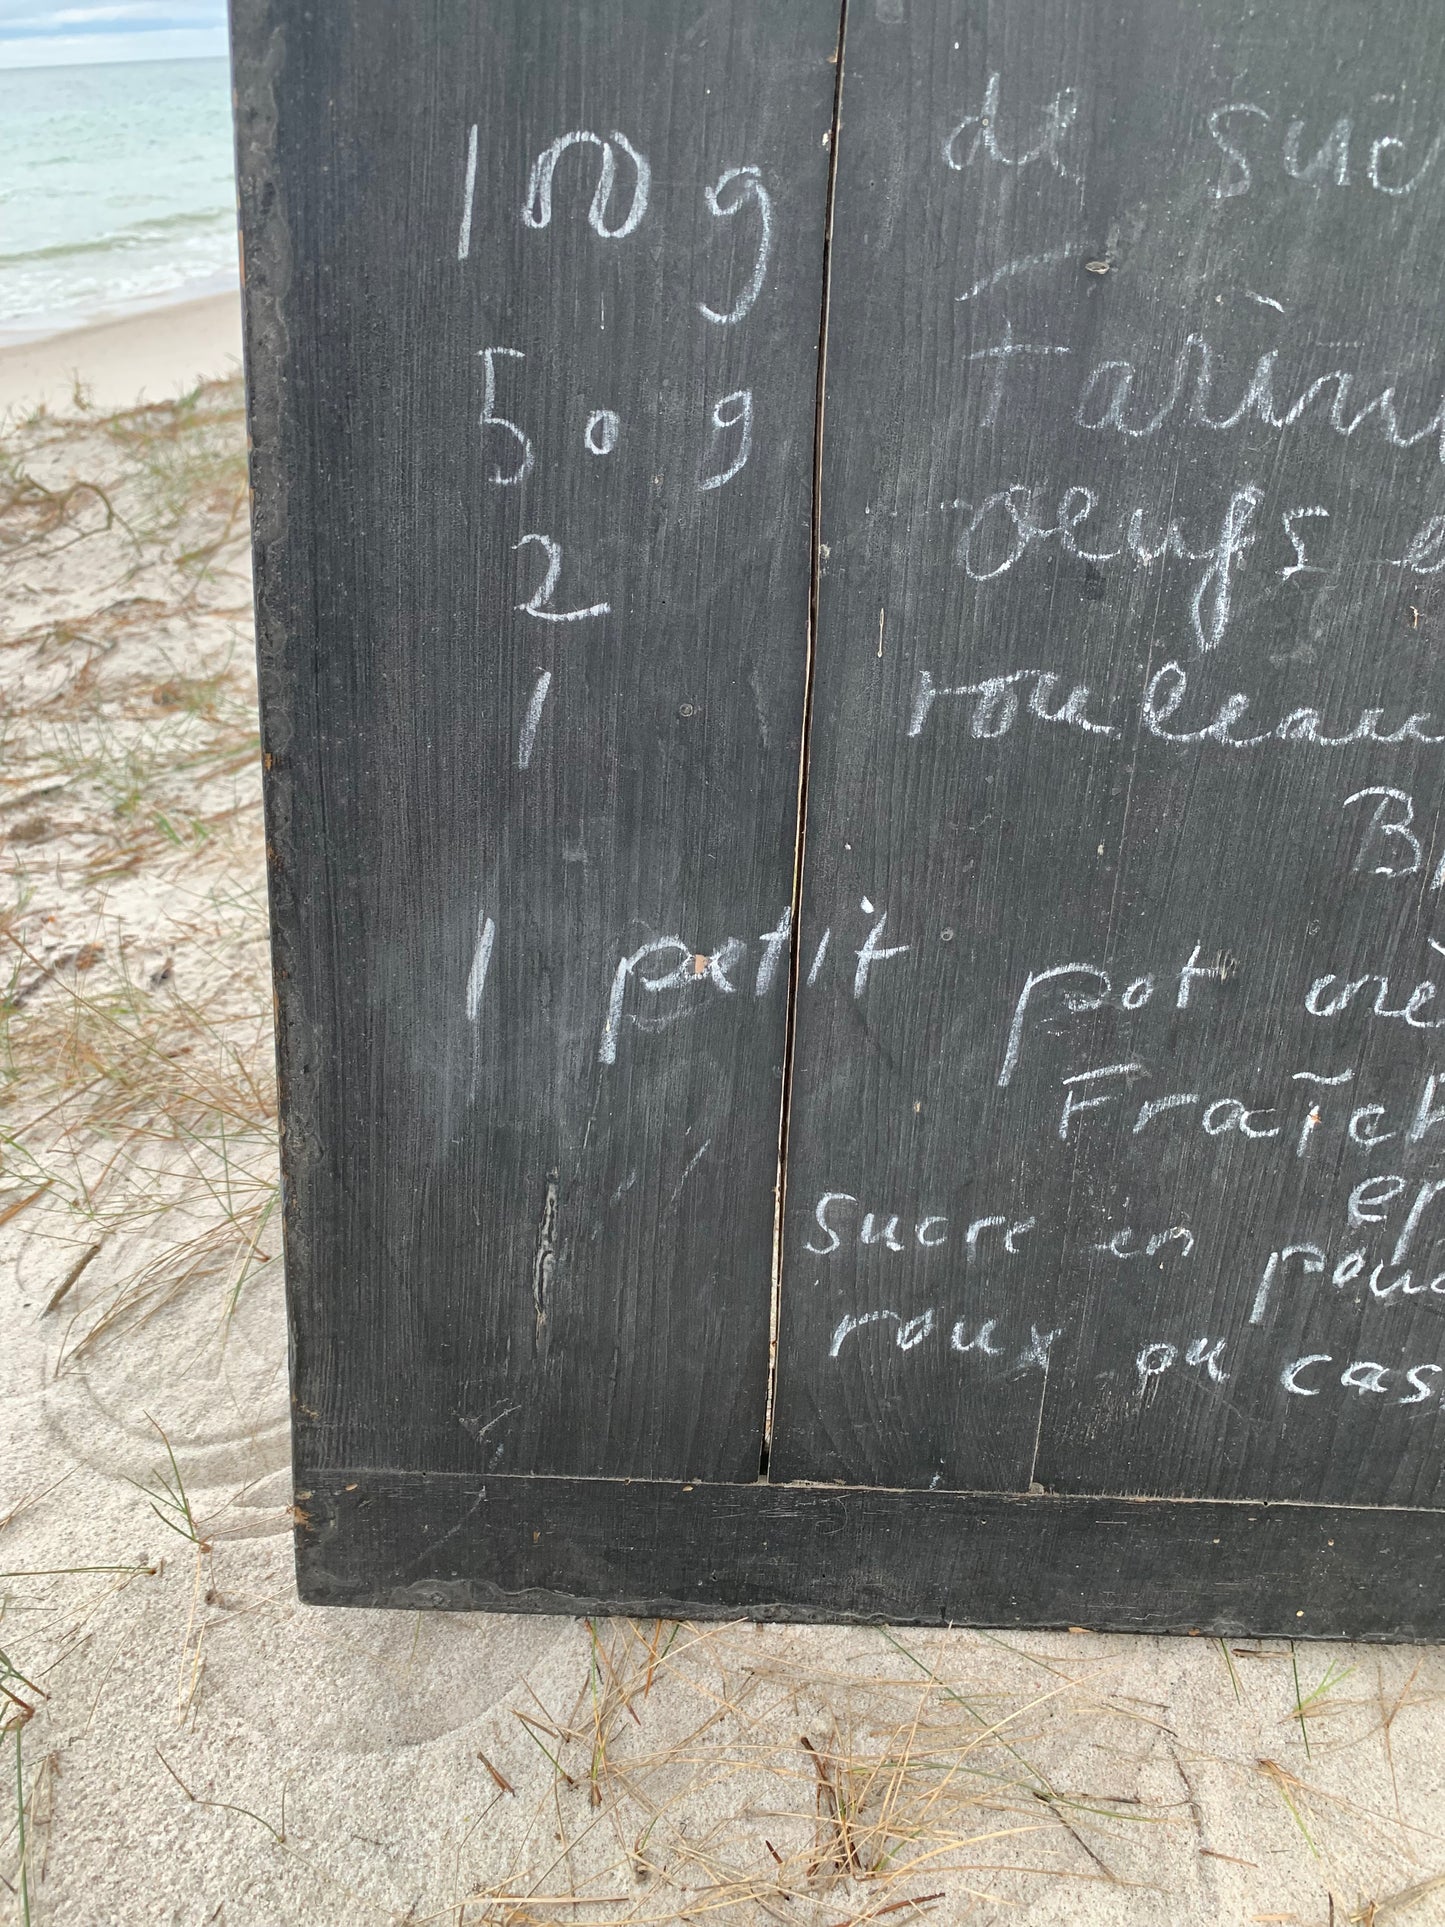 100 g de suc
50 g Farin
2 oeufs e
1 rouleau
B
1 petit pot crè
Fraîch
ep
sucre en poud
roux ou cas